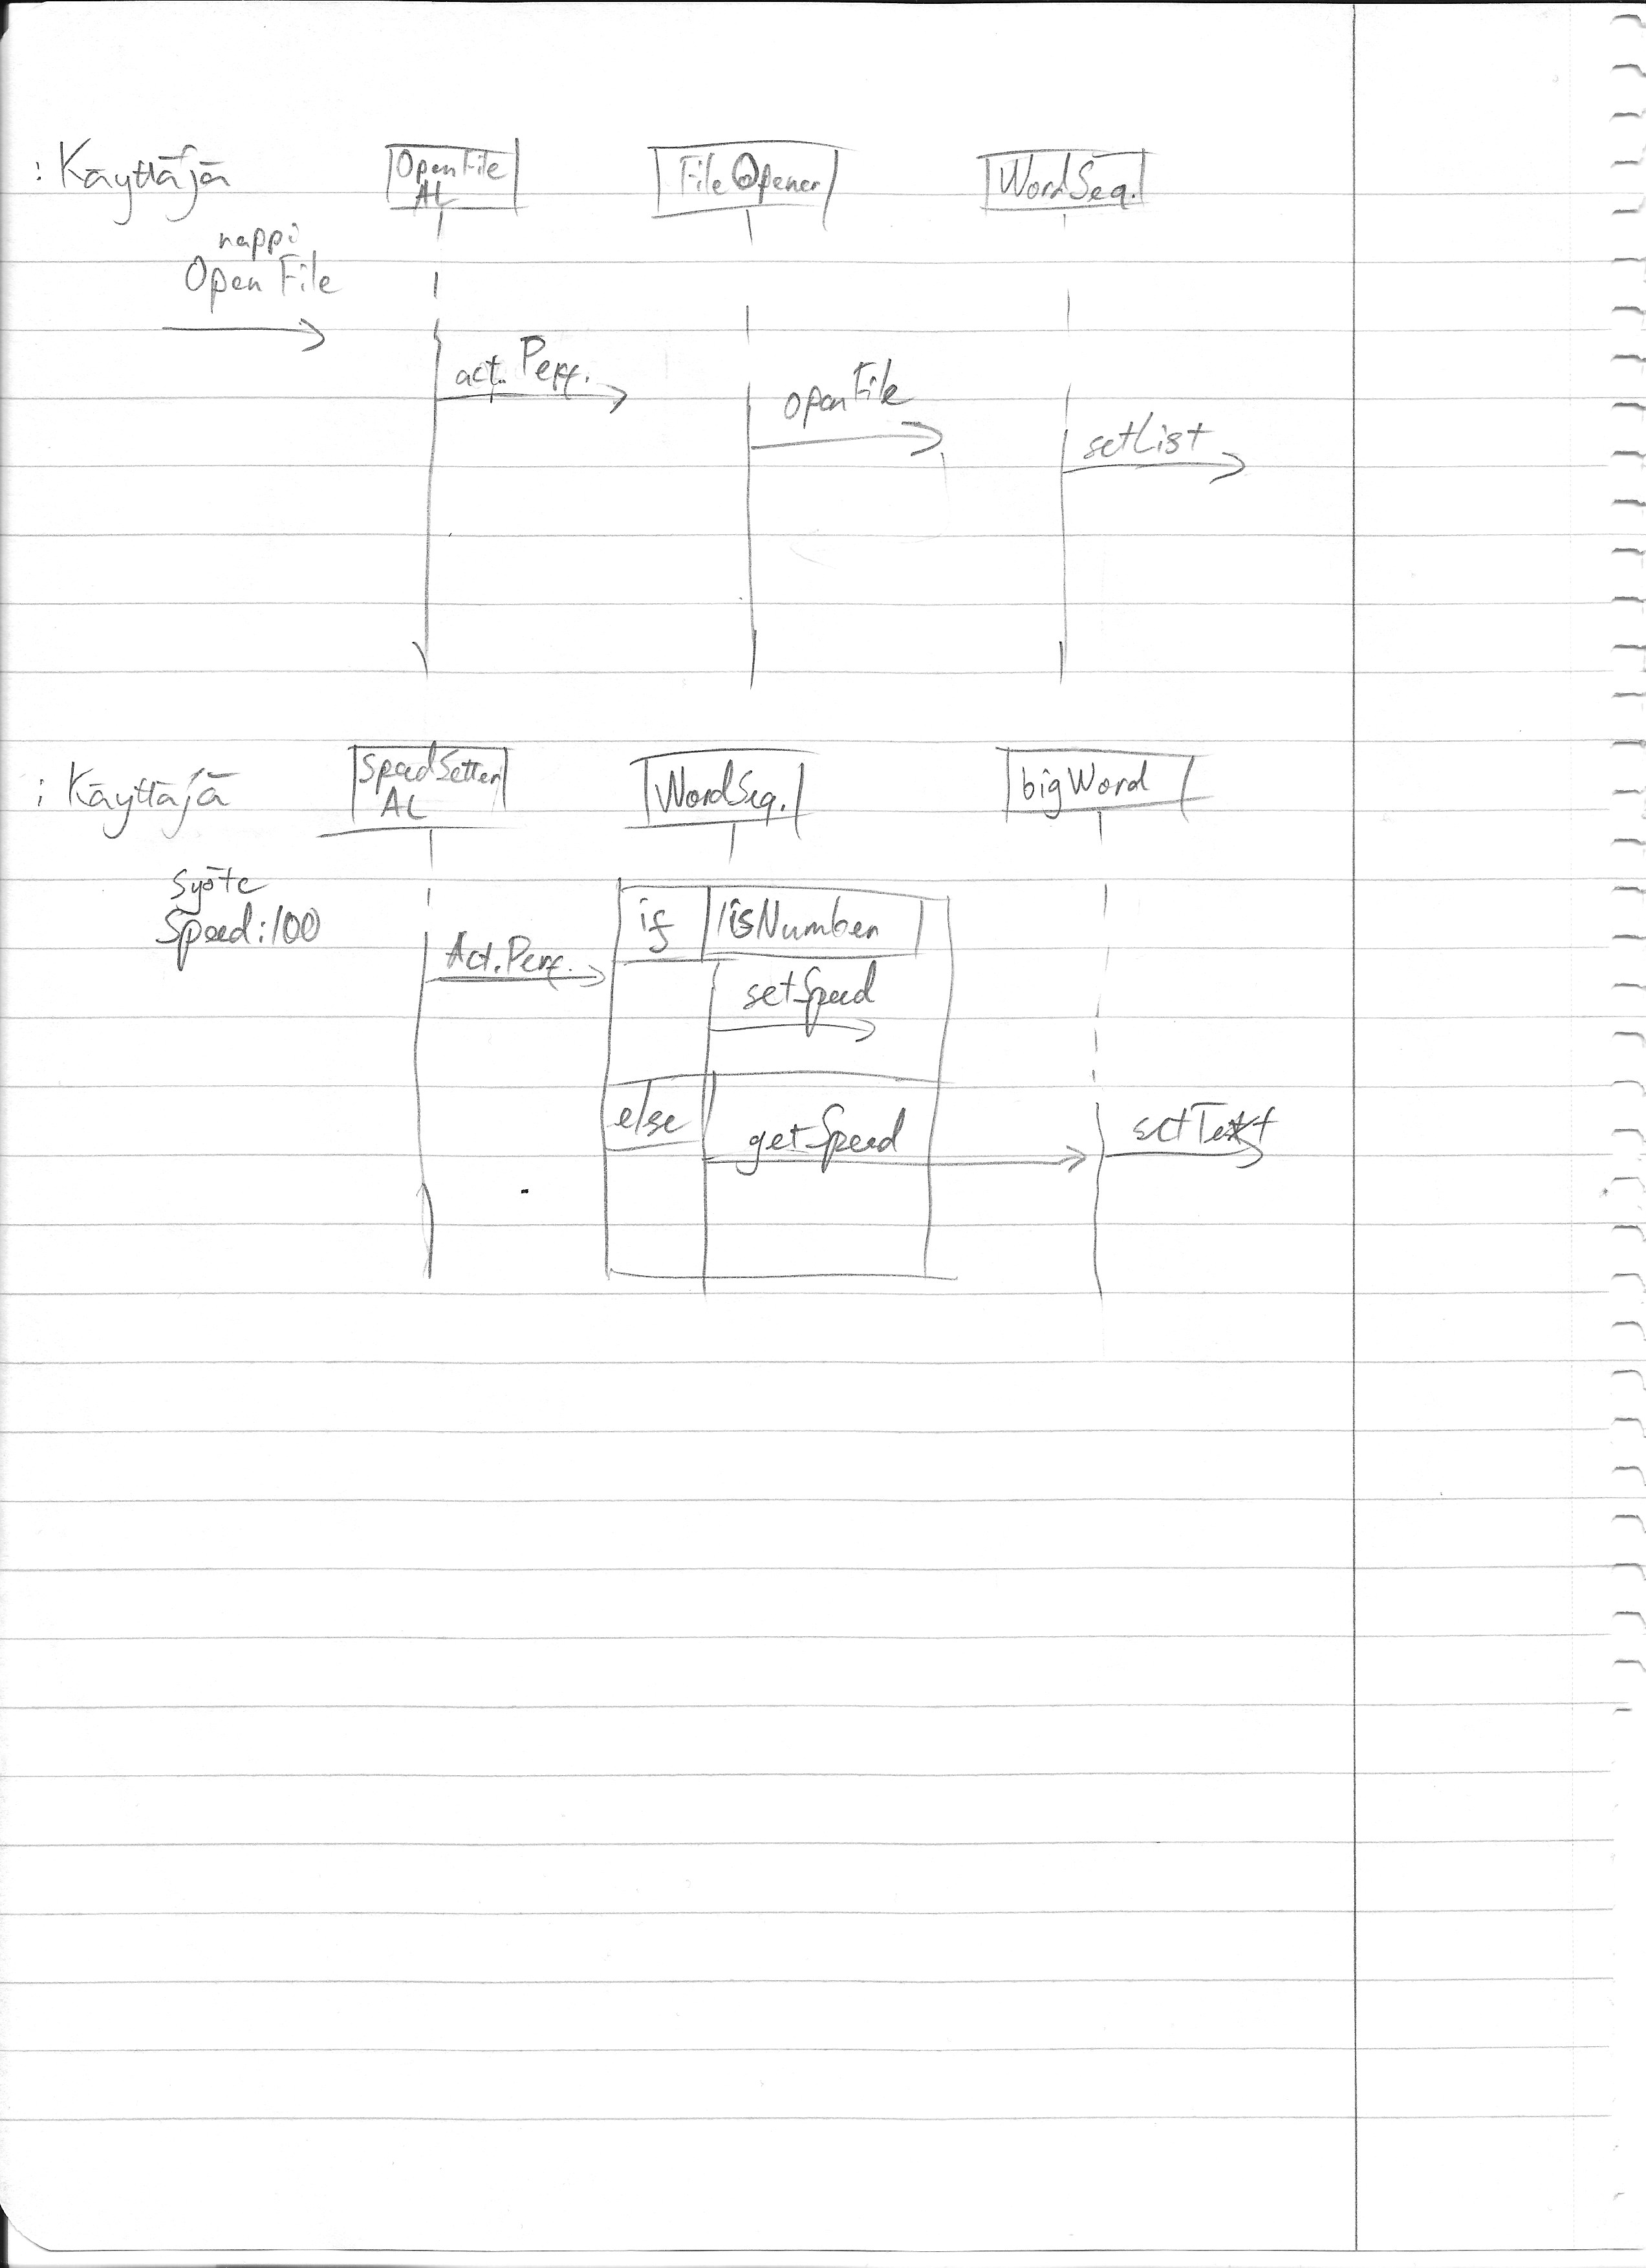 : Käyttäjä
OpenFile
AL
FileOpener
WordSeq.
nappi
Open File
act. Perf.
openFile
setList
: Käyttäjä
SpeedSetter
AL
WordSeq.
bigWord
syöte
Speed:100
Act.Perf.
if
!isNumber
setSpeed
else
getSpeed
setText